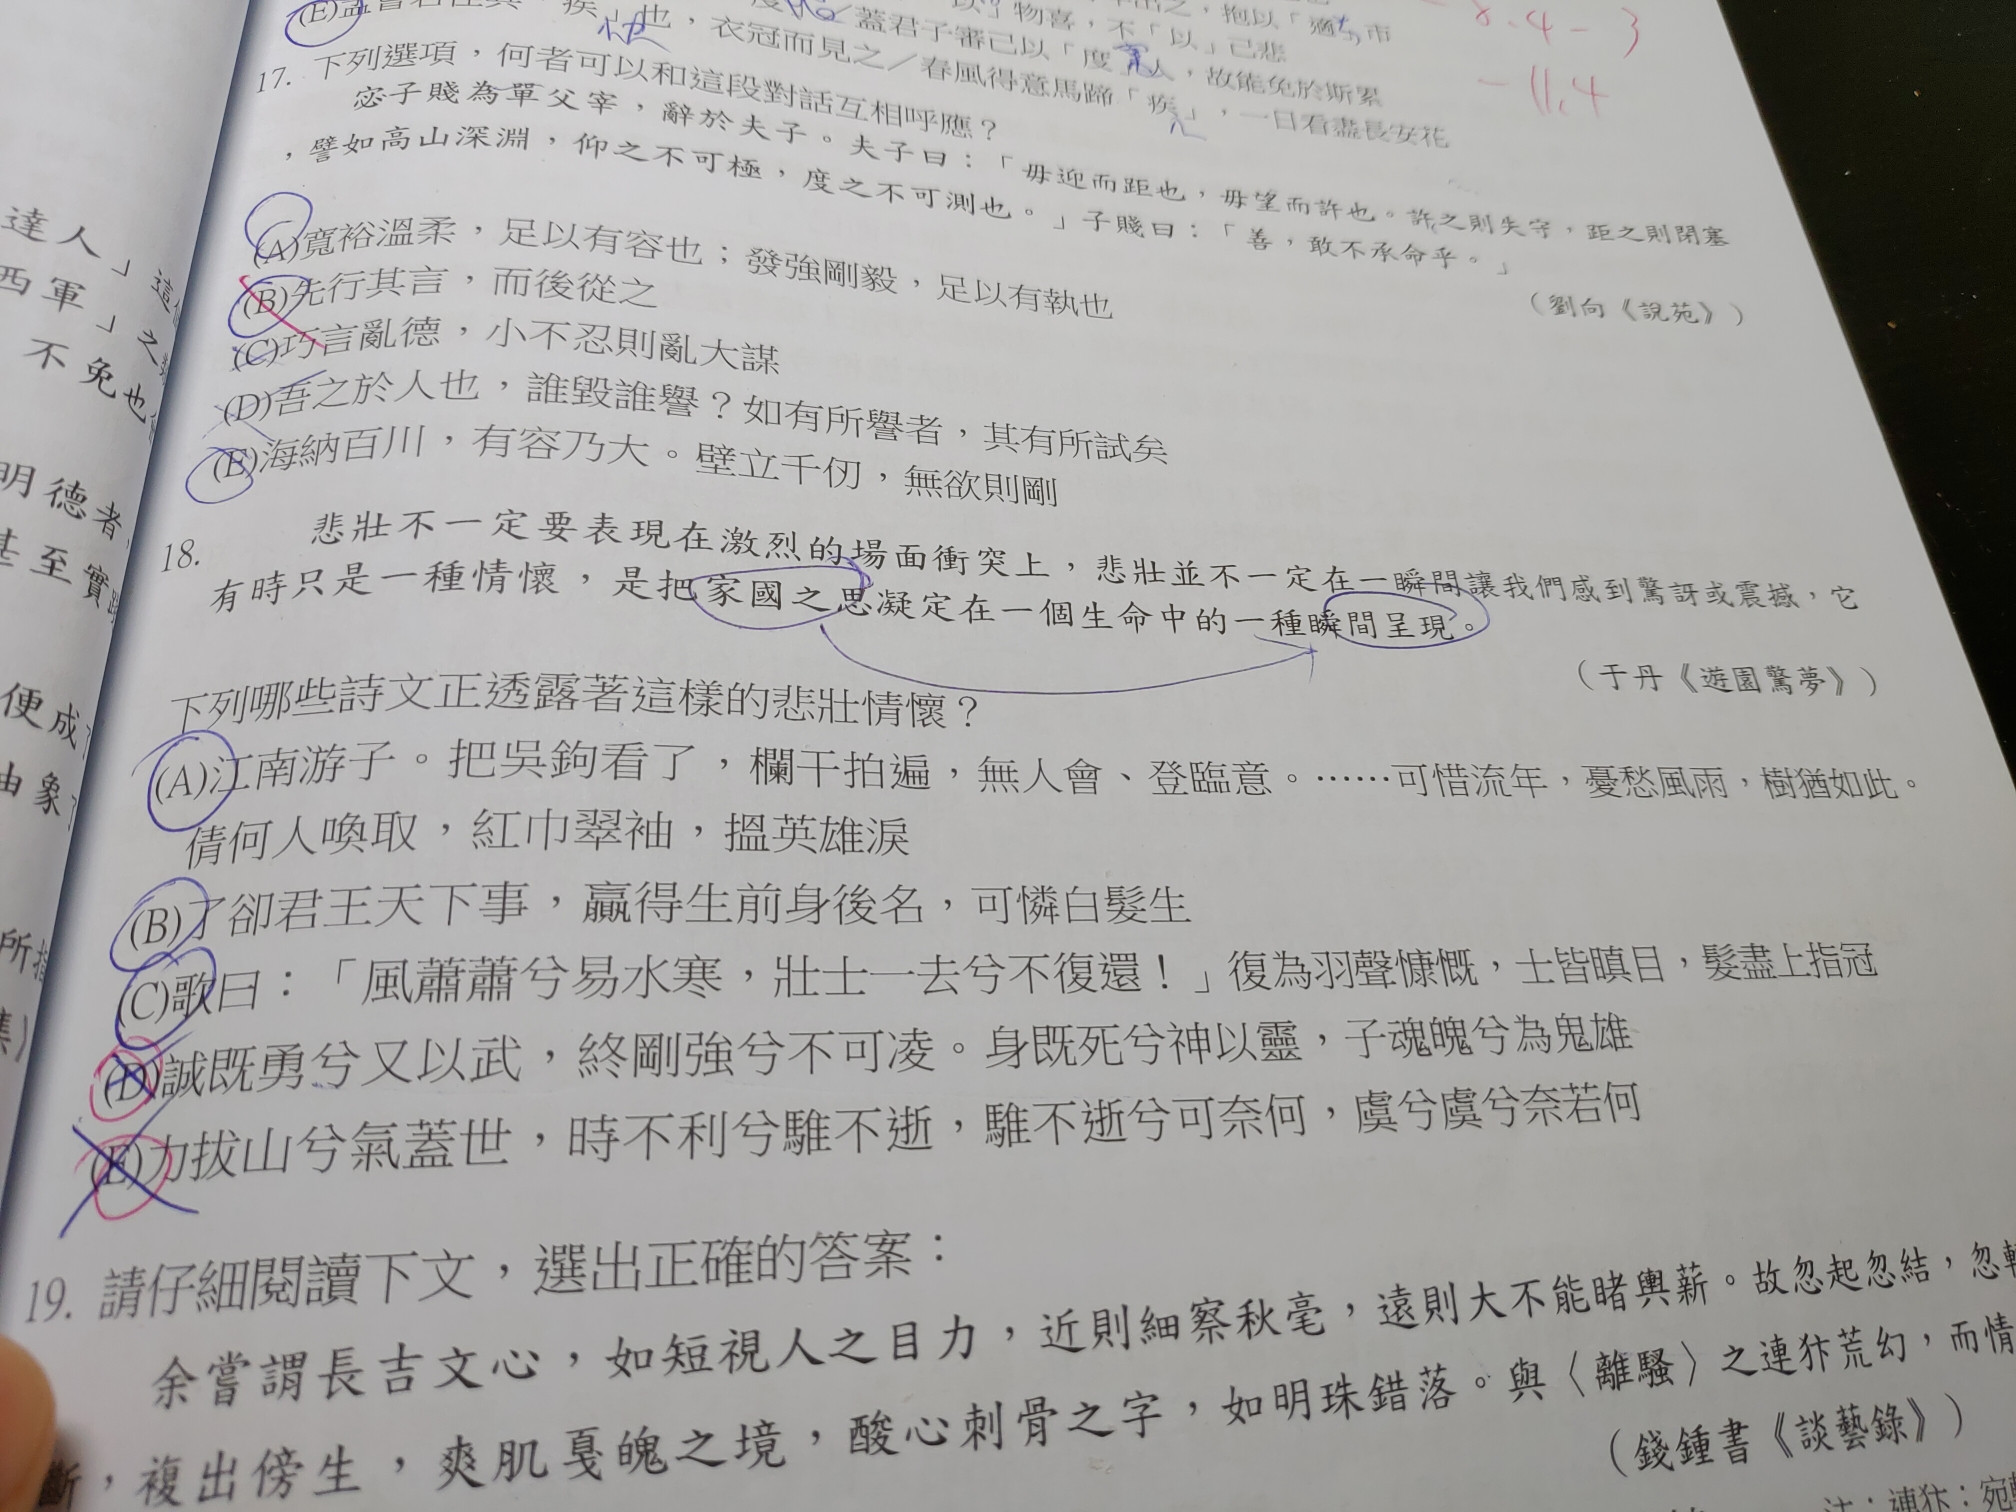 也，衣冠而見之／春風得意馬蹄「疾」，一日看盡長安花
蓋君子審己以「度」人，故能免於斯累
物喜，不「以」己悲
抱以「適」市
- 11.4
17. 下列選項，何者可以和這段對話互相呼應？
宓子賤為單父宰，辭於夫子。夫子曰：「毋迎而距也，毋望而許也。許之則失守，距之則閉塞
，譬如高山深淵，仰之不可極，度之不可測也。」子賤曰：「善，敢不承命乎。」
（劉向《說苑》）
(A)寬裕溫柔，足以有容也；發強剛毅，足以有執也
(B)先行其言，而後從之
(C)巧言亂德，小不忍則亂大謀
(D)吾之於人也，誰毀誰譽？如有所譽者，其有所試矣
(E)海納百川，有容乃大。壁立千仞，無欲則剛
18.
悲壯不一定要表現在激烈的場面衝突上，悲壯並不一定在一瞬間讓我們感到驚訝或震撼，它
有時只是一種情懷，是把家國之思凝定在一個生命中的一種瞬間呈現。
（于丹《遊園驚夢》）
下列哪些詩文正透露著這樣的悲壯情懷？
(A)江南游子。把吳鉤看了，欄干拍遍，無人會、登臨意。……可惜流年，憂愁風雨，樹猶如此。
倩何人喚取，紅巾翠袖，搵英雄淚
(B)了卻君王天下事，贏得生前身後名，可憐白髮生
(C)歌曰：「風蕭蕭兮易水寒，壯士一去兮不復還！」復為羽聲慷慨，士皆瞋目，髮盡上指冠
(D)誠既勇兮又以武，終剛強兮不可凌。身既死兮神以靈，子魂魄兮為鬼雄
(E)力拔山兮氣蓋世，時不利兮騅不逝，騅不逝兮可奈何，虞兮虞兮奈若何
19. 請仔細閱讀下文，選出正確的答案：
余嘗謂長吉文心，如短視人之目力，近則細察秋毫，遠則大不能睹輿薪。故忽起忽結，忽
斷，複出傍生，爽肌戛魄之境，酸心刺骨之字，如明珠錯落。與〈離騷〉之連犿荒幻，而情
（錢鍾書《談藝錄》）
注：連犿：宛
達人」
西軍」之
不免也
明德者
甚至實
便成
抽象
所指